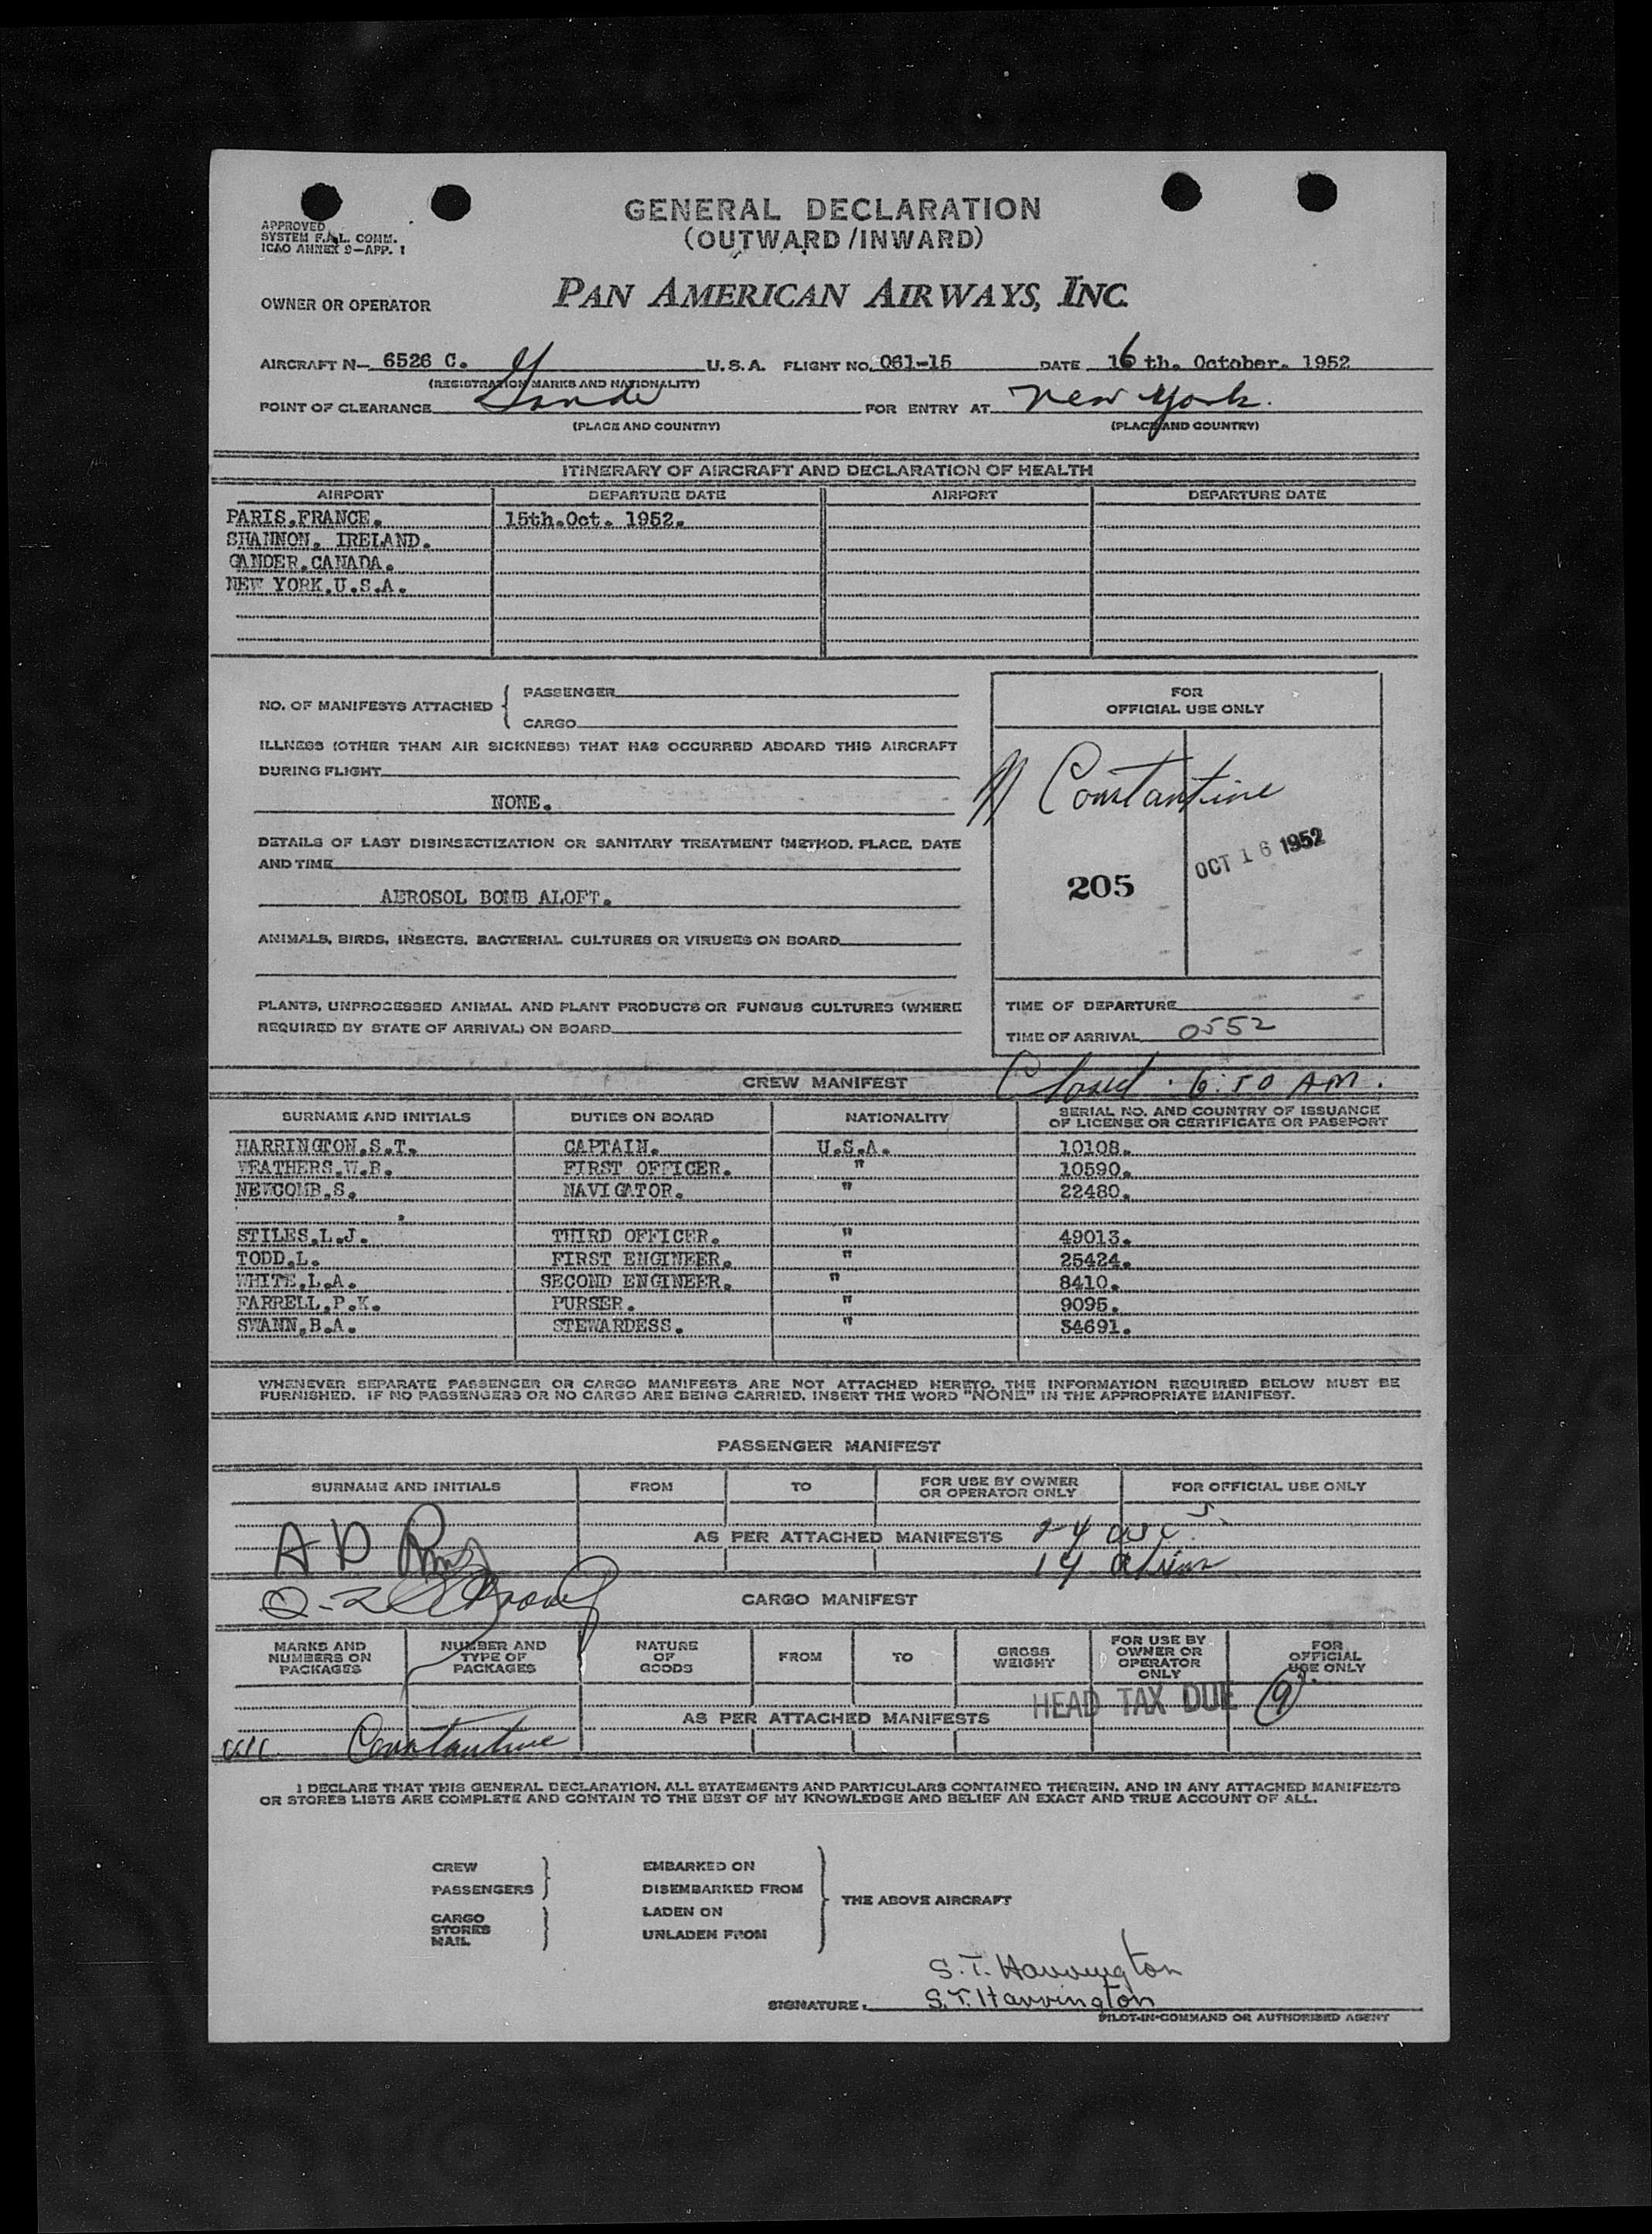 GENERAL DECLARATION
(OUTWARD/INWARD)
APPROVED
SYSTEM F.A.L. COMM.
ICAO ANNEX 9—APP. 1
OWNER OR OPERATOR PAN AMERICAN AIRWAYS, INC.
AIRCRAFT N— 6526 C. U.S.A. FLIGHT NO. 061-15 DATE 16 th. October. 1952
(REGISTRATION MARKS AND NATIONALITY)
POINT OF CLEARANCE Gander FOR ENTRY AT New York.
(PLACE AND COUNTRY) (PLACE AND COUNTRY)
ITINERARY OF AIRCRAFT AND DECLARATION OF HEALTH
AIRPORT DEPARTURE DATE AIRPORT DEPARTURE DATE
PARIS.FRANCE. 15th.Oct. 1952.
SHANNON. IRELAND.
GANDER.CANADA.
NEW YORK.U.S.A.
NO. OF MANIFESTS ATTACHED { PASSENGER
CARGO
ILLNESS (OTHER THAN AIR SICKNESS) THAT HAS OCCURRED ABOARD THIS AIRCRAFT
DURING FLIGHT
NONE.
DETAILS OF LAST DISINSECTIZATION OR SANITARY TREATMENT (METHOD, PLACE, DATE
AND TIME
AEROSOL BOMB ALOFT.
ANIMALS, BIRDS, INSECTS, BACTERIAL CULTURES OR VIRUSES ON BOARD
PLANTS, UNPROCESSED ANIMAL AND PLANT PRODUCTS OR FUNGUS CULTURES (WHERE
REQUIRED BY STATE OF ARRIVAL) ON BOARD
FOR
OFFICIAL USE ONLY
Constantine
205 OCT 16 1952
TIME OF DEPARTURE
TIME OF ARRIVAL 0552
Closed. 6:50 AM.
CREW MANIFEST
SURNAME AND INITIALS DUTIES ON BOARD NATIONALITY SERIAL NO. AND COUNTRY OF ISSUANCE
OF LICENSE OR CERTIFICATE OR PASSPORT
HARRINGTON.S.T. CAPTAIN. U.S.A. 10108.
WEATHERS.W.B. FIRST OFFICER. " 10590.
NEWCOMB.S. NAVIGATOR. " 22480.
STILES.L.J. THIRD OFFICER. " 49013.
TODD.L. FIRST ENGINEER. " 25424.
WHITE.L.A. SECOND ENGINEER. " 8410.
FARRELL.P.K. PURSER. " 9095.
SWANN.B.A. STEWARDESS. " 34691.
WHENEVER SEPARATE PASSENGER OR CARGO MANIFESTS ARE NOT ATTACHED HERETO, THE INFORMATION REQUIRED BELOW MUST BE
FURNISHED. IF NO PASSENGERS OR NO CARGO ARE BEING CARRIED, INSERT THE WORD "NONE" IN THE APPROPRIATE MANIFEST.
PASSENGER MANIFEST
SURNAME AND INITIALS FROM TO FOR USE BY OWNER
OR OPERATOR ONLY FOR OFFICIAL USE ONLY
AS PER ATTACHED MANIFESTS 24
14 aliens
CARGO MANIFEST
MARKS AND
NUMBERS ON
PACKAGES
NUMBER AND
TYPE OF
PACKAGES
NATURE
OF
GOODS
FROM TO
GROSS
WEIGHT
FOR USE BY
OWNER OR
OPERATOR
ONLY
FOR
OFFICIAL
USE ONLY
HEAD TAX DUE 9
AS PER ATTACHED MANIFESTS
Constantine
I DECLARE THAT THIS GENERAL DECLARATION, ALL STATEMENTS AND PARTICULARS CONTAINED THEREIN, AND IN ANY ATTACHED MANIFESTS
OR STORES LISTS ARE COMPLETE AND CONTAIN TO THE BEST OF MY KNOWLEDGE AND BELIEF AN EXACT AND TRUE ACCOUNT OF ALL.
CREW
PASSENGERS
CARGO
STORES
MAIL
EMBARKED ON
DISEMBARKED FROM
LADEN ON
UNLADEN FROM
THE ABOVE AIRCRAFT
S.T. Harrington
SIGNATURE: S.T. Harrington
PILOT-IN-COMMAND OR AUTHORISED AGENT